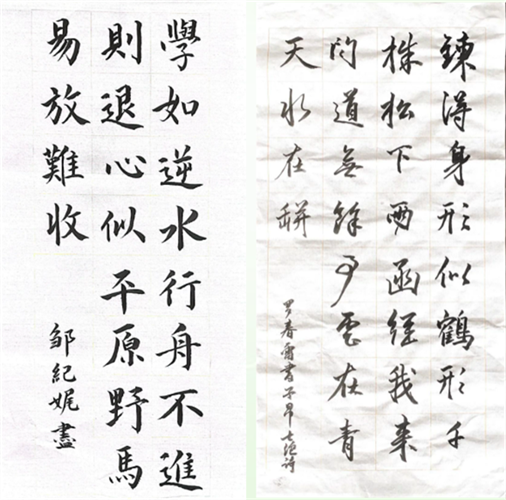 學如逆水行舟不進
則退心似平原野馬
易放難收
鄒紀娓
鍊得身形似鶴形千
株松下兩函經我來
問道無餘事雲在青
天水在缾